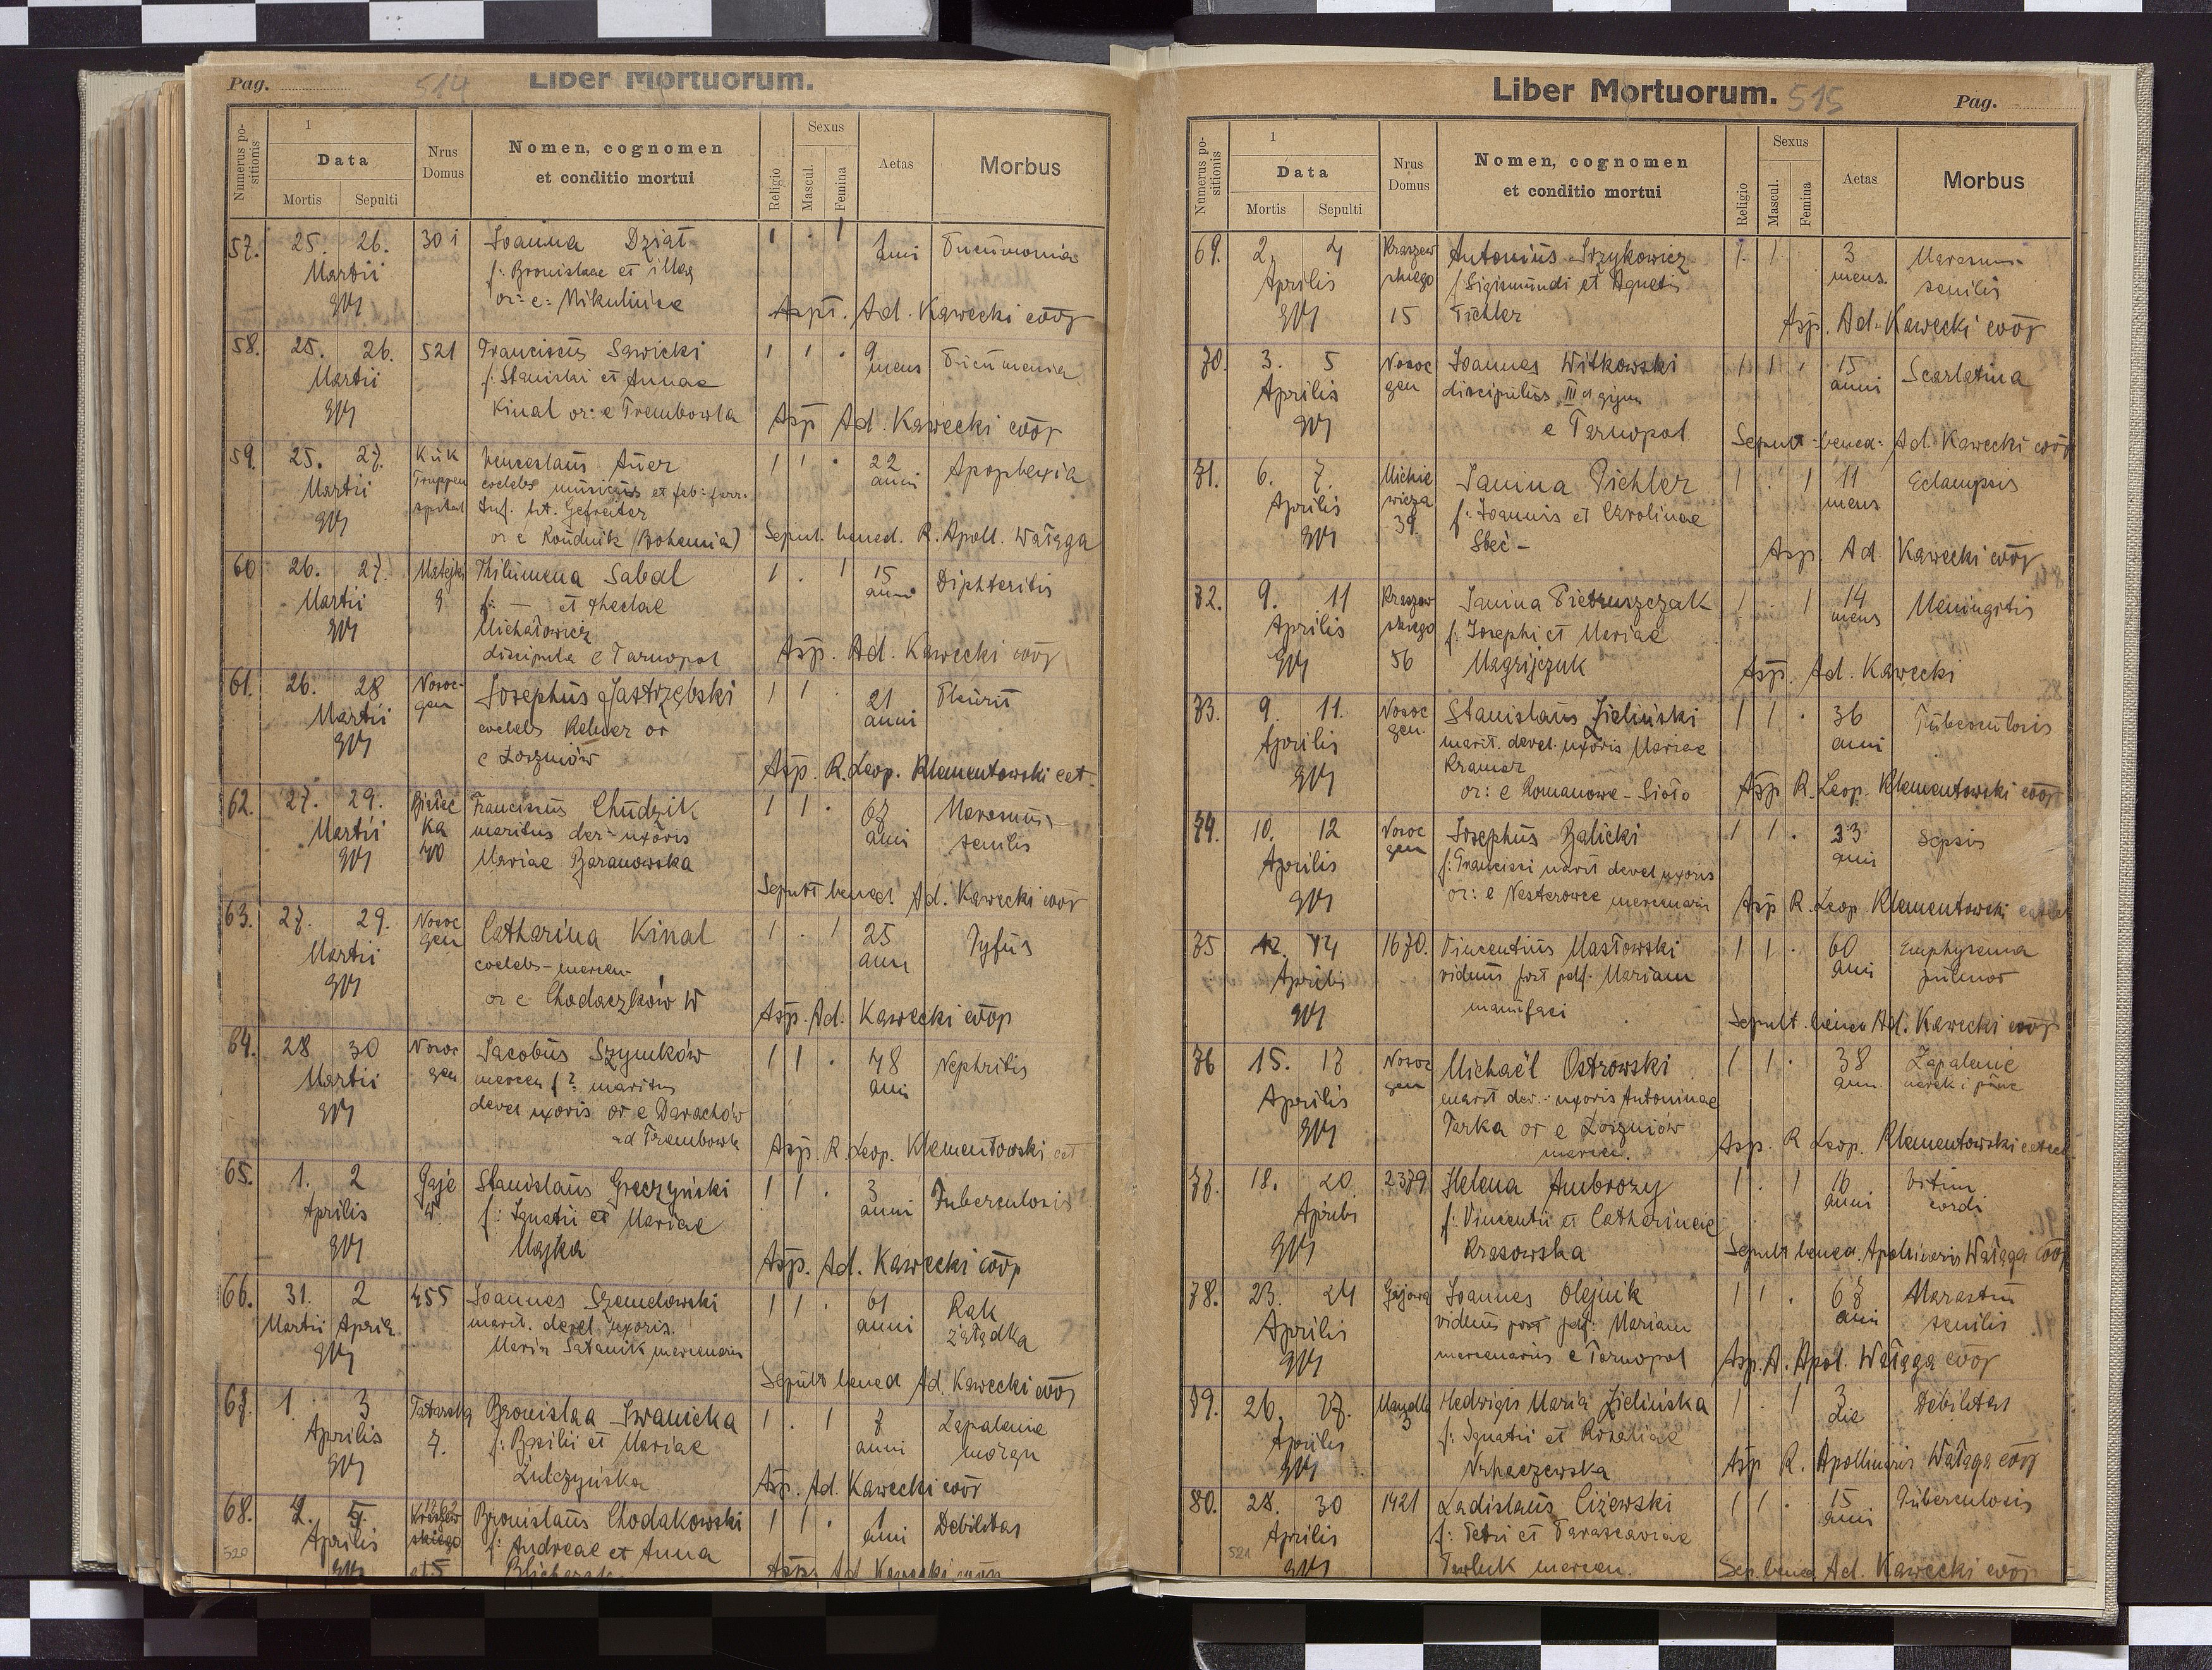 Pag. 514 Liber Mortuorum.
Numerus positionis
1
Data
Mortis Sepulti
Nrus Domus
Nomen, cognomen
et conditio mortui
Religio
Sexus
Mascul. Femina
Aetas
Morbus
57. 25. 26. 301 Joanna Dziat 1 . 1 1 Pneumonia
Martii f: Bronislaae et illeg anni
or: e: Mikulińce
Aspr. Ad. Kawecki coop
58. 25. 26. 521 Franciscus Sawicki 1 1 . 9 Pneumonia
Martii f: Stanislai et Annae mens
Kinal or: e Trembowla
Asp Ad. Kawecki coop
59. 25. 27. KuK Venceslaus Auer 1 1 . 22 Apoplexia
Martii Truppen coelebs musicus et anni
spital Inf. Gefreiter
or e Roudnik (Bohemia) Sepul. bened. R. Apoll. Wałęga
60 26. 27. Matejki Philumena Sabal 1 . 1 15 Diphteritis
Martii 9 f: — et Theclae anni
Michałowicz
discipula e Tarnopol Asp. Ad. Kawecki coop
61. 26. 28 Nosoc- Josephus Jastrzębski 1 1 . 21 Pleurit
Martii gen coelebs Kelner or anni
e Łoszniów
Asp. R. Leop. Klementowski cat
62. 27. 29. Franciscus Chudzik 1 1 . 67 Marasmus
Martii ka maritus der- uxoris anni senilis
40 Mariae Baranowska
Sepult bened Ad. Kawecki coop
63. 27. 29. Nosoc Catharina Kinal 1 . 1 25 Tyfus
Martii gen coelebs-mercen- ann
or e Chodaczków W
Asp. Ad. Kawecki coop
64. 28 30 Nosoc Jacobus Szymków 1 1 . 48 Nephritis
Martii gen mercen f? maritus anni
derel uxoris or e Darachów
ad Trembowla Asp. R. Leop. Klementowski cat
65. 1. 2 Gaje Stanislaus Greczyński 1 1 . 3 Tuberculosis
Aprilis W. f: Ignatii et Mariae anni
Majka
Asp. Ad. Kawecki coop
66. 31. 2 455 Joannes Szemelowski 1 1 . 61 Rak
Martii Aprilis marit. derel. uxoris. anni żołądka
Maria Satanik mercenarii
Sepult bened Ad. Kawecki coop
67. 1. 3 Tatarska Bronislaa Iwanicka 1 . 1 7 Zapalenie
Aprilis 7. f: Basilii et Mariae anni mózgu
Żulczyńska
Asp. Ad. Kawecki coop
68. 4. 5. 1262 Bronislaus Chodakowski 1 1 . 1 Debilitas
Aprilis f: Andreae et Anna anni
520 Asp. Ad Kawecki coop
Liber Mortuorum. 515 Pag.
Numerus positionis
1
Data
Mortis Sepulti
Nrus Domus
Nomen, cognomen
et conditio mortui
Religio
Sexus
Mascul. Femina
Aetas
Morbus
69. 2. 4 Kraszew Antonius Irzykowicz 1. 1 3 Marasm-
Aprilis skiego f Sigismundi et Agnetis mens. senilis
15 Pichler
Asp. Ad. Kawecki coop
70. 3. 5 Nosoc Joannes Witkowski 1 1 . 15 Scarlatina
Aprilis gen discipulus III cl gimn anni
e Tarnopol Sepult-bened- Ad. Kawecki coop
71. 6. 7. Mickie Janina Pichler 1 . 1 11 Eclampsis
Aprilis wicza f: Joannis et Carolinae mens
39. Steć -
Asp. Ad Kawecki coop
72. 9. 11 Kraszew Janina Pietruszczak 1 . 1 14 Meningitis
Aprilis skiego f: Josephi et Mariae mens
56 Magrijczuk
Asp. Ad. Kawecki
73. 9. 11. Nosoc Stanislaus Zieliński 1 1 . 36 Tuberculosis
Aprilis gen. marit. derel. uxoris Mariae anni
Kramar
or: e Romanowe-Sioło Asp R. Leop. Klementowski coop
74. 10. 12 Nosoc Josephus Balicki 1 1 . 33 Sepsis
Aprilis gen f: Francisci marit derel uxoris anni
or: e Nesterowce mercenarii Asp R. Leop. Klementowski
75 12. 14 1670. Vincentius Masłowski 1 1 . 60 Emphysema
Aprilis viduus post pdf. Mariam anni pulmo
manufaci
Sepult. bened Ad. Kawecki coop
76 15. 17 Nosoc Michaël Ostrowski 1 1 . 38 Zapalenie
Aprilis gen marit der.- uxoris Antoninae ann. nerek i
Tarka or e Łoszniów
mercen. Asp. R Leop. Klementowski
77. 18. 20 2379 Helena Ambrozy 1 . 1 16 Vitium
Aprilis f: Vincentii et Catharinae anni cordi
Krasowska Sepult bened. Apolinaris Wałęga coop
78. 23. 24 Gajowa Joannes Olejnik 1 1 . 67 Marasm
Aprilis viduus post pdf. Mariam anni senilis
mercenarius e Tarnopol Asp. R. Apol. Wałęga coop
79. 26. 27. Hedwigis Maria Zielińska 1 . 1 3 Debilitas
Aprilis 3 f: Ignatii et Rosaliae die
Asp R. Apollinaris Wałęga coop
80. 28. 30 1421 Ladislaus Ciżewski 1 1 . 15 Tuberculosis
Aprilis f: Petri et Parasceviae anni
521 Pawluk mercen. Sep. bened Ad. Kawecki coop